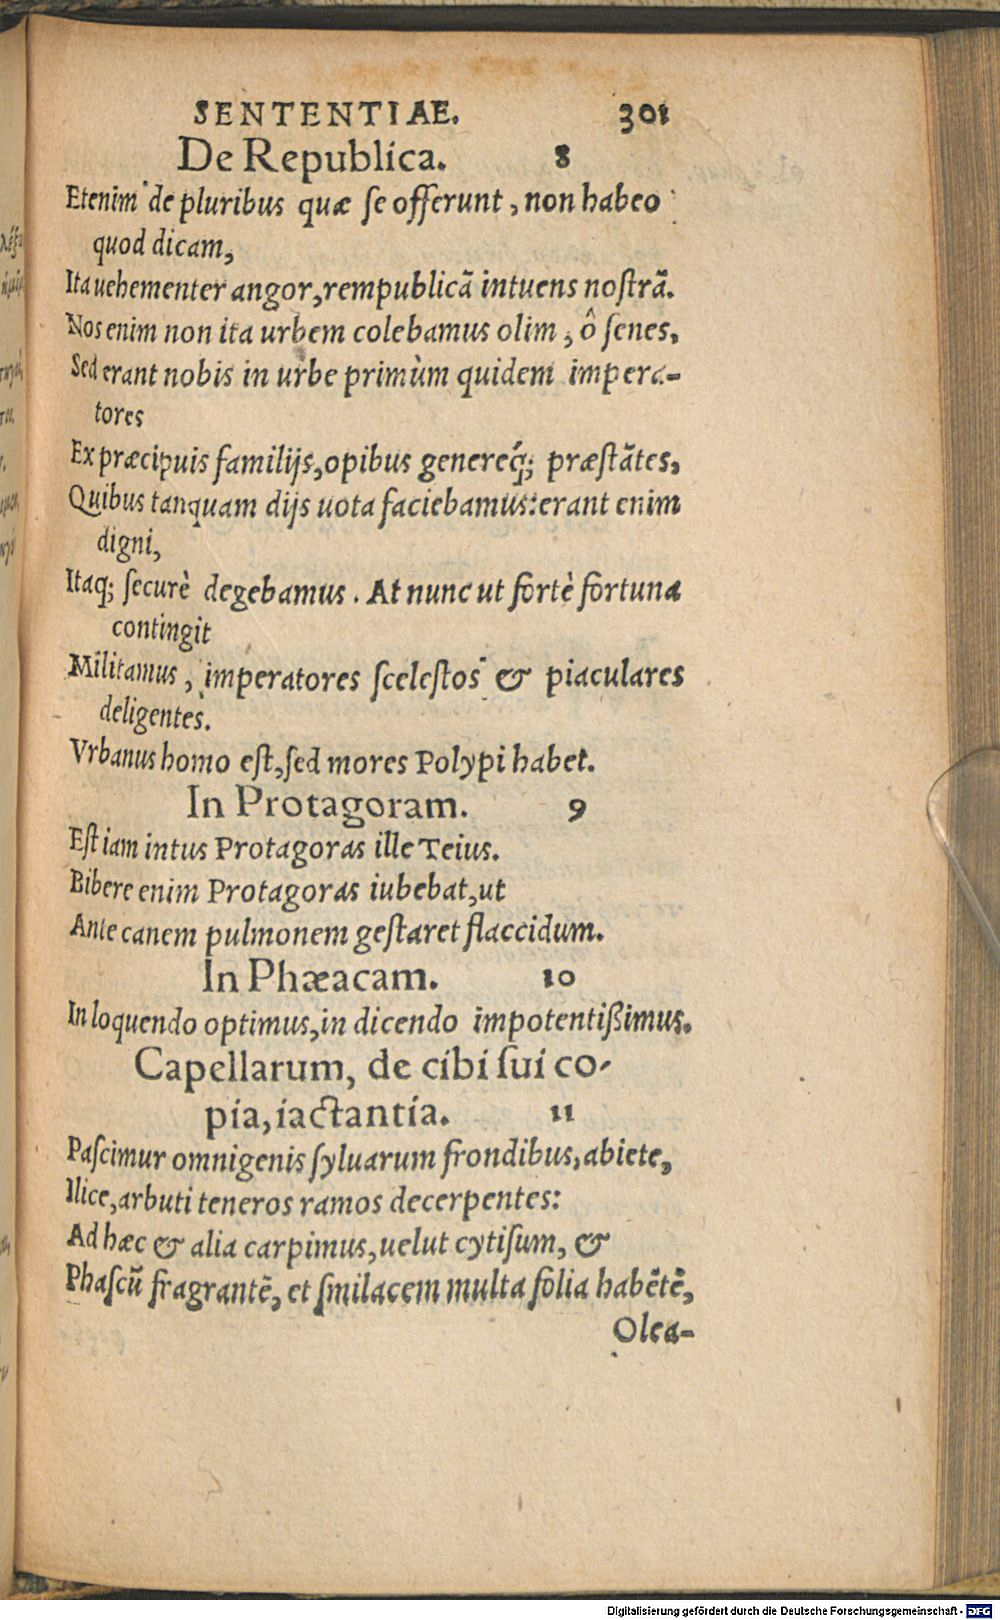 SENTENTIAE. 301
De Republica. 8
Etenim de pluribus quæ se offerunt, non habeo
quod dicam,
Ita uehementer angor, rempublicā intuens nostrā.
Nos enim non ita urbem colebamus olim, ô senes,
Sed erant nobis in urbe primùm quidem impera-
tores
Ex præcipuis familijs, opibus genereq́; præstātes,
Quibus tanquam dijs uota faciebamus: erant enim
digni,
Itaq; securè degebamus. At nunc ut fortè fortuna
contingit
Militamus, imperatores scelestos & piaculares
deligentes.
Vrbanus homo est, sed mores Polypi habet.
In Protagoram. 9
Est iam intus Protagoras ille Teius.
Bibere enim Protagoras iubebat, ut
Ante canem pulmonem gestaret flaccidum.
In Phæacam. 10
In loquendo optimus, in dicendo impotentißimus.
Capellarum, de cibi sui co-
pia, iactantia. 11
Pascimur omnigenis syluarum frondibus, abiete,
Ilice, arbuti teneros ramos decerpentes:
Ad hæc & alia carpimus, uelut cytisum, &
Phascū fragrantē, et smilacem multa folia habētē,
Olea-
Digitalisierung gefördert durch die Deutsche Forschungsgemeinschaft - DFG